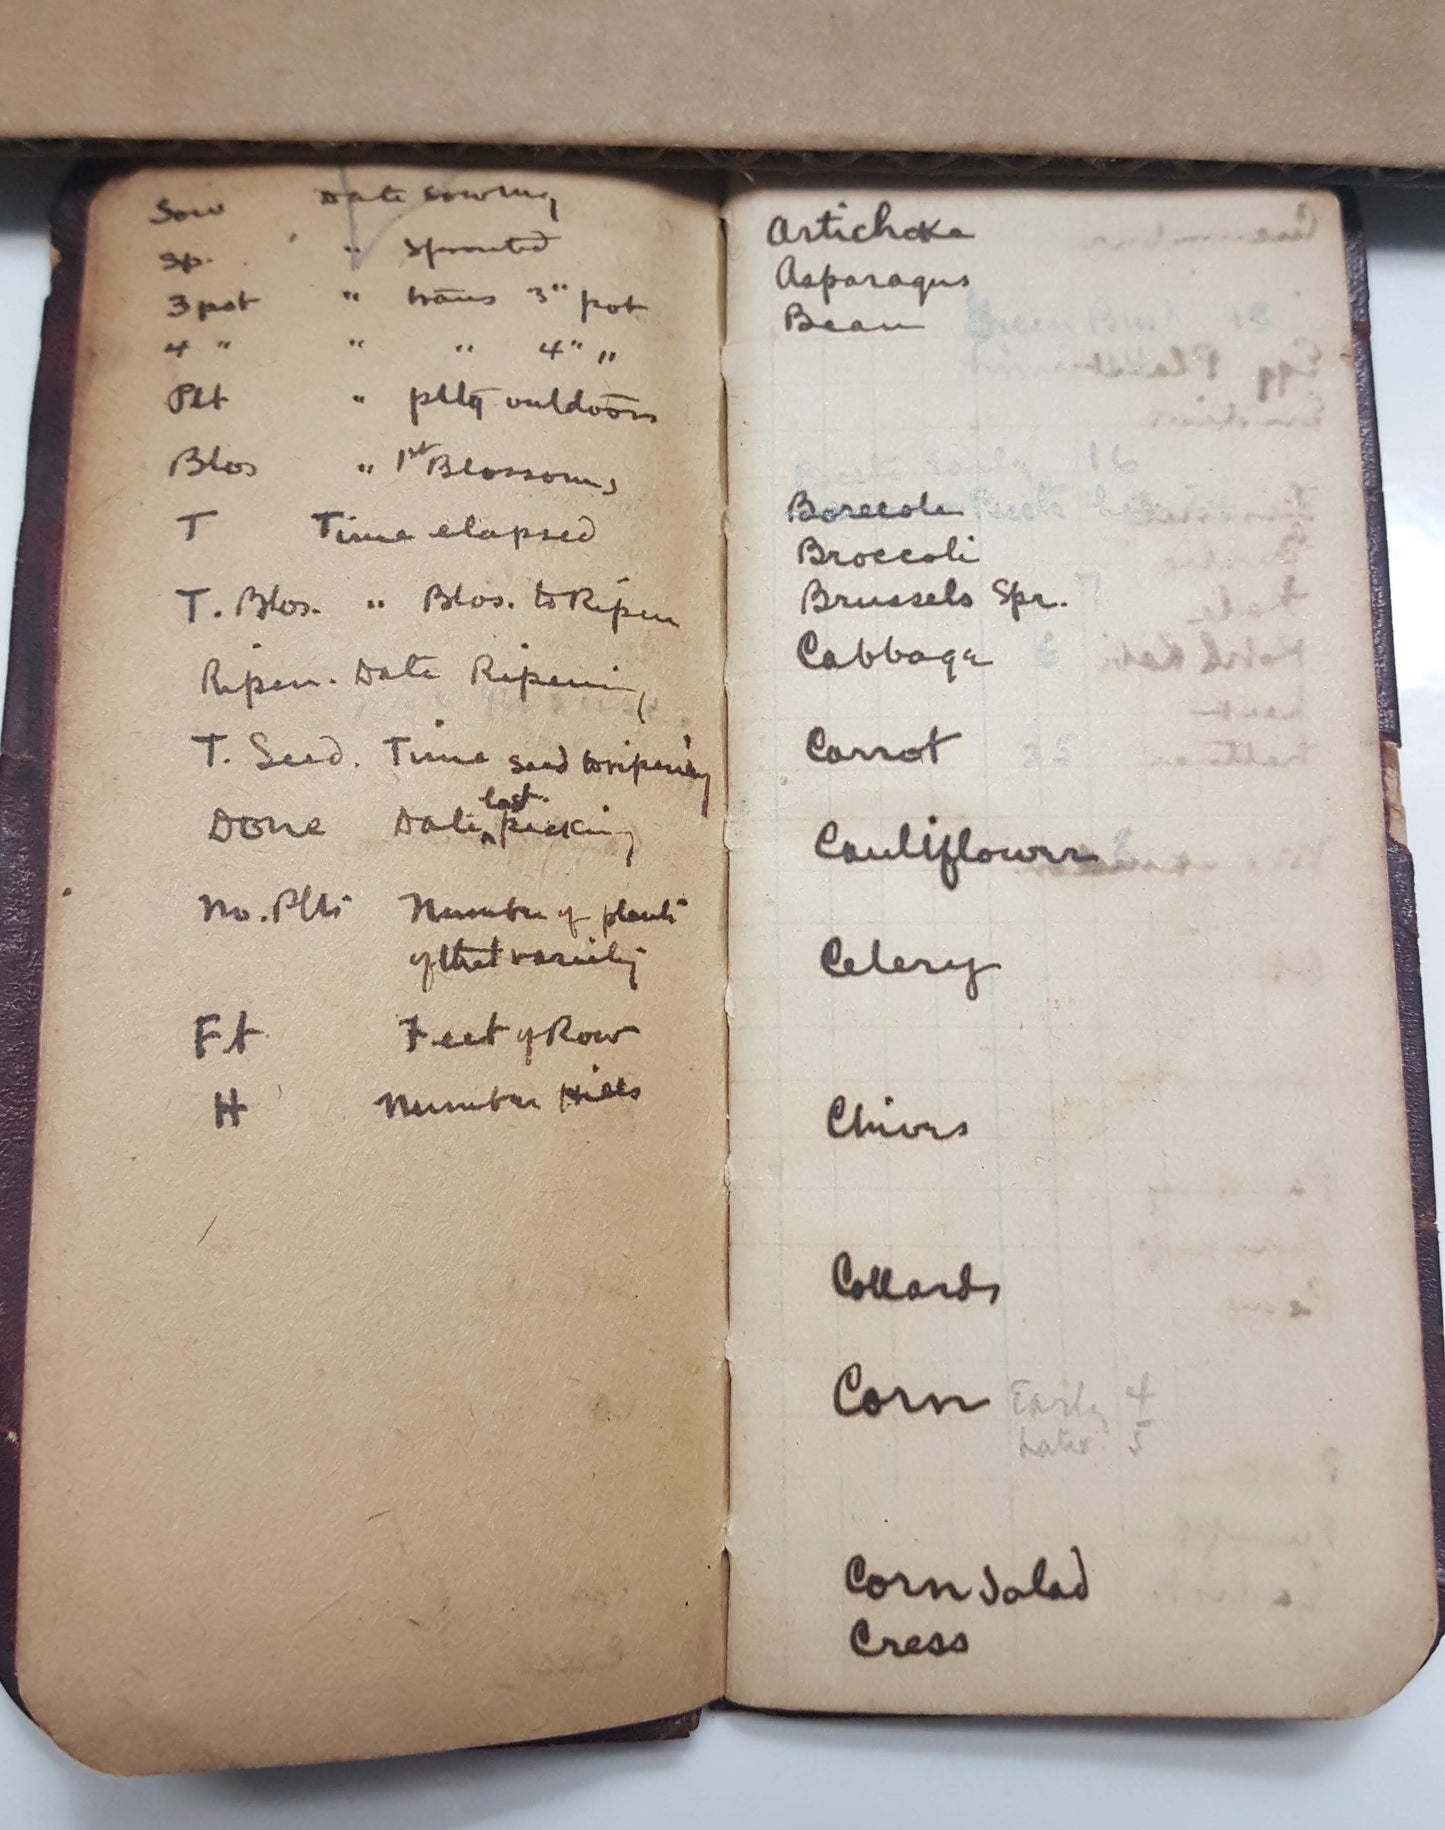 Sow Date Sowing
Sp. " Sprouted
3 pot " trans 3" pot
4 " " " 4" "
Plt " pltg outdoors
Blos " 1st Blossoms
T Time elapsed
T. Blos. " Blos. to Ripen
Ripen. Date Ripening
T. Seed. Time seed to ripening
last
Done Date picking
No. Plts Number of plants
of that variety
Ft Feet of Row
H Number Hills
Artichoke
Asparagus
Bean Green Bush 18
Beets early 16
Borecole Beets
Broccoli
Brussels Spr. 7
Cabbage 6
Carrot 35
Cauliflower
Celery
Chives
Collards
Corn Early 4
Late 5
Corn Salad
Cress